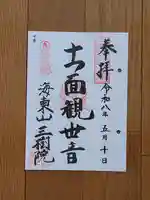 奉拝
令和八年五月十日
十一面観世音
海東山三樹院